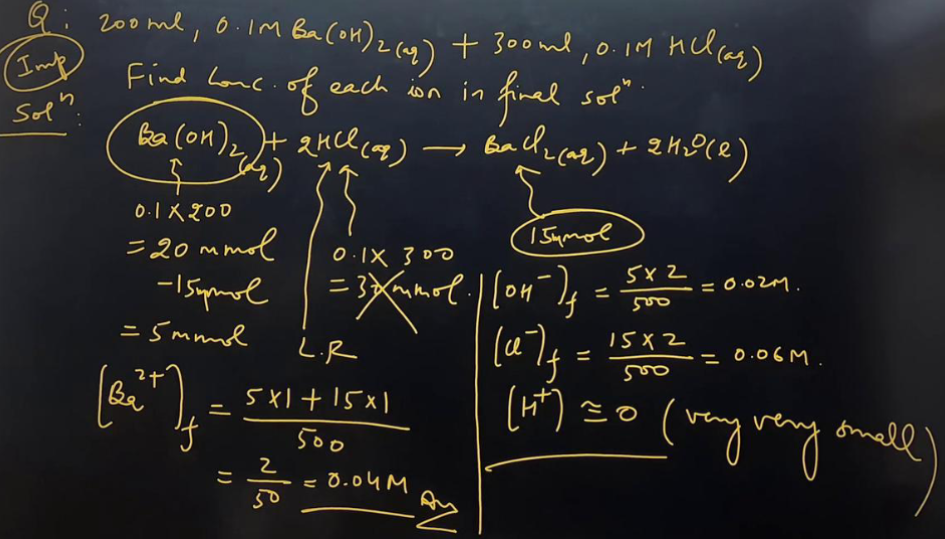 Q: 200 ml, 0.1M Ba(OH)₂(aq) + 300 ml, 0.1M HCl(aq)
Imp
Find conc. of each ion in final solⁿ.
Solⁿ:
Ba(OH)₂(aq) + 2HCl(aq) → BaCl₂(aq) + 2H₂O(l)
0.1 × 200
= 20 mmol
-15mmol
= 5 mmol
0.1 × 300
= 30 mmol.
L.R
15mmol
[Ba²⁺]f = (5×1 + 15×1)/500
= 2/50 = 0.04M Ans
[OH⁻]f = (5×2)/500 = 0.02M.
[Cl⁻]f = (15×2)/500 = 0.06M.
[H⁺] ≅ 0 (very very small)